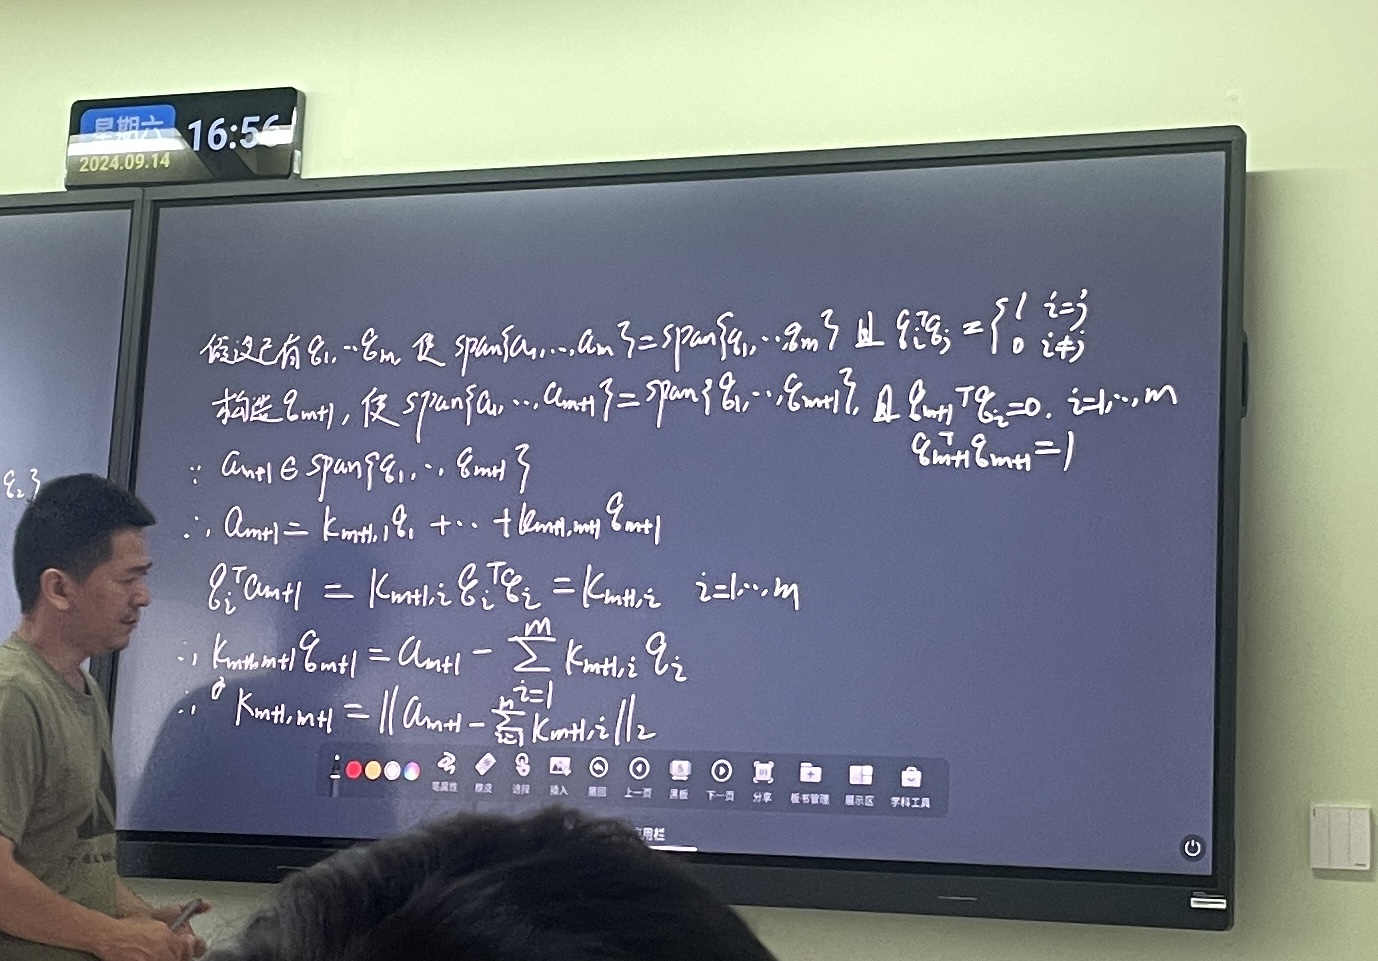 星期六 16:56
2024.09.14
q₂}
假设已有q₁,…qₘ 使 span{a₁,…,aₘ}=span{q₁,…,qₘ} 且 qᵢᵀqⱼ = { 1 i=j
0 i≠j
构造qₘ₊₁, 使 span{a₁,…,aₘ₊₁}=span{q₁,…,qₘ₊₁}, 且 qₘ₊₁ᵀqᵢ=0. i=1,…,m
qₘ₊₁ᵀqₘ₊₁=1
∵ aₘ₊₁∈span{q₁,…,qₘ₊₁}
∴ aₘ₊₁ = kₘ₊₁,₁q₁ +… +kₘ₊₁,ₘ₊₁qₘ₊₁
qᵢᵀaₘ₊₁ = kₘ₊₁,ᵢ qᵢᵀqᵢ = kₘ₊₁,ᵢ i=1,…,m
∴ kₘ₊₁,ₘ₊₁qₘ₊₁ = aₘ₊₁ - ∑ᵢ₌₁ᵐ kₘ₊₁,ᵢ qᵢ
∴ kₘ₊₁,ₘ₊₁ = ||aₘ₊₁ - ∑ᵢ₌₁ᵐ kₘ₊₁,ᵢ||₂
笔属性 橡皮 选择 插入 撤回 上一页 黑板 下一页 分享 板书管理 展示区 学科工具
用栏